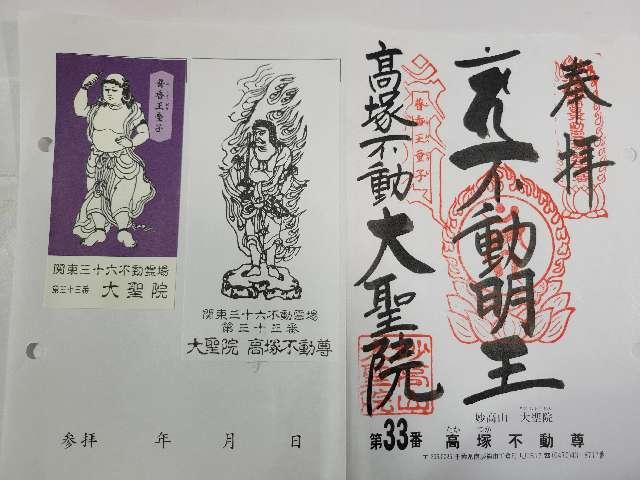 奉拝
不動明王
高塚不動
大聖院
普香王童子
妙高山 大聖院
第33番 高塚不動尊
たか つか
普香王童子
関東三十六不動霊場
第三十三番 大聖院
関東三十六不動霊場
第三十三番
大聖院 高塚不動尊
参拝 年 月 日